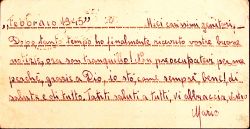 "Febbraio 1945"
Miei carissimi genitori,
Dopo tanto tempo ho finalmente ricevuto vostre buone
notizie, ora son tranquillo! Non preoccupatevi per me
perché, grazie a Dio, io sto, come sempre, bene! di
salute e di tutto. Tanti saluti a tutti, vi abbraccio,
Mario